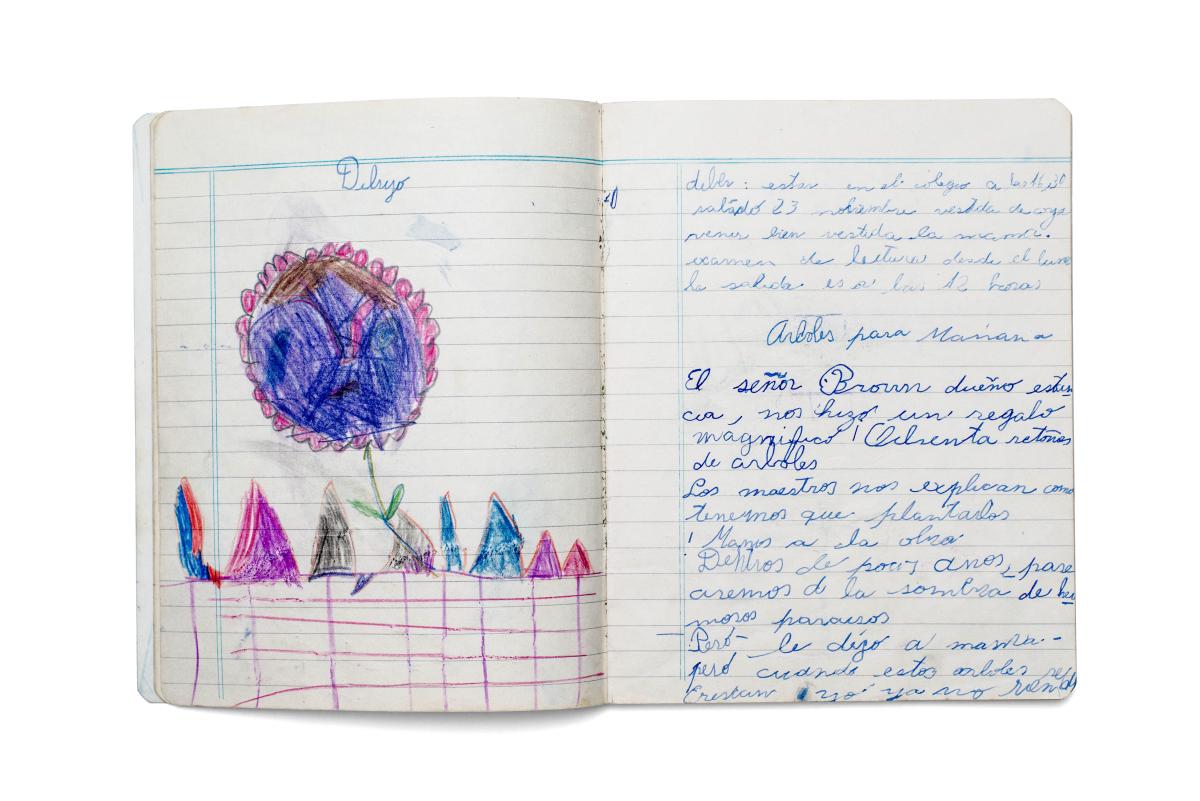 Dibujo
deber: estar en el colegio a las 16,30
sabado 23 nobiembre vestida de
venir bien vestida la mamá.
examen de lectura desde el lune
la salida es a las 12 horas
Arboles para Mañana
El señor Brown dueño estan
cia, nos hizo un regalo
magnifico! Ochsenta retoños
de arboles
Los maestros nos explican como
tenemos que plantarlos
! Manos a la obra
Dentros de pocos anos, pare
aremos d la sombra de her
mosos paraisos
Peró - le digo a mama -
peró cuando estos arboles
yó ya no